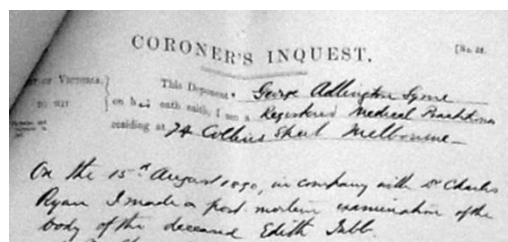 CORONER'S INQUEST.
[No. 24.
OF VICTORIA.
TO WIT
This Deponent George Adlington Syme
on his oath saith, I am a Registered Medical Practitioner
residing at 74 Collins Street Melbourne
On the 15th August 1890, in company with Dr Charles
Ryan I made a post mortem examination of the
body of the deceased Edith